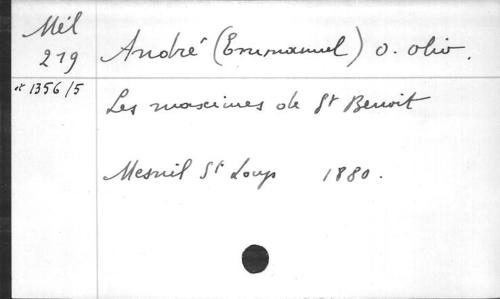 Mél
219
et 1356/5
André (Emmanuel) O. Oliv.
Les maximes de St Benoit
Mesnil St Loup 1880.